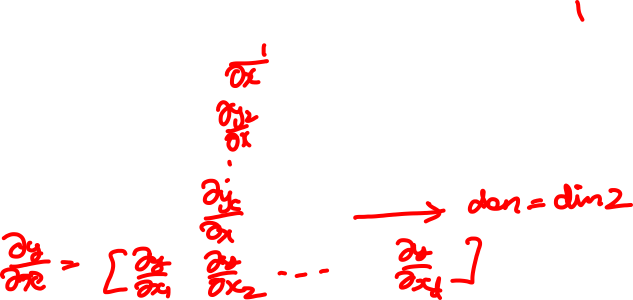 1
∂x
∂y2/∂x
.
∂yc/∂x → den = dim 2
∂y/∂x = [∂y/∂x1 ∂y/∂x2 ---- ∂y/∂xd]